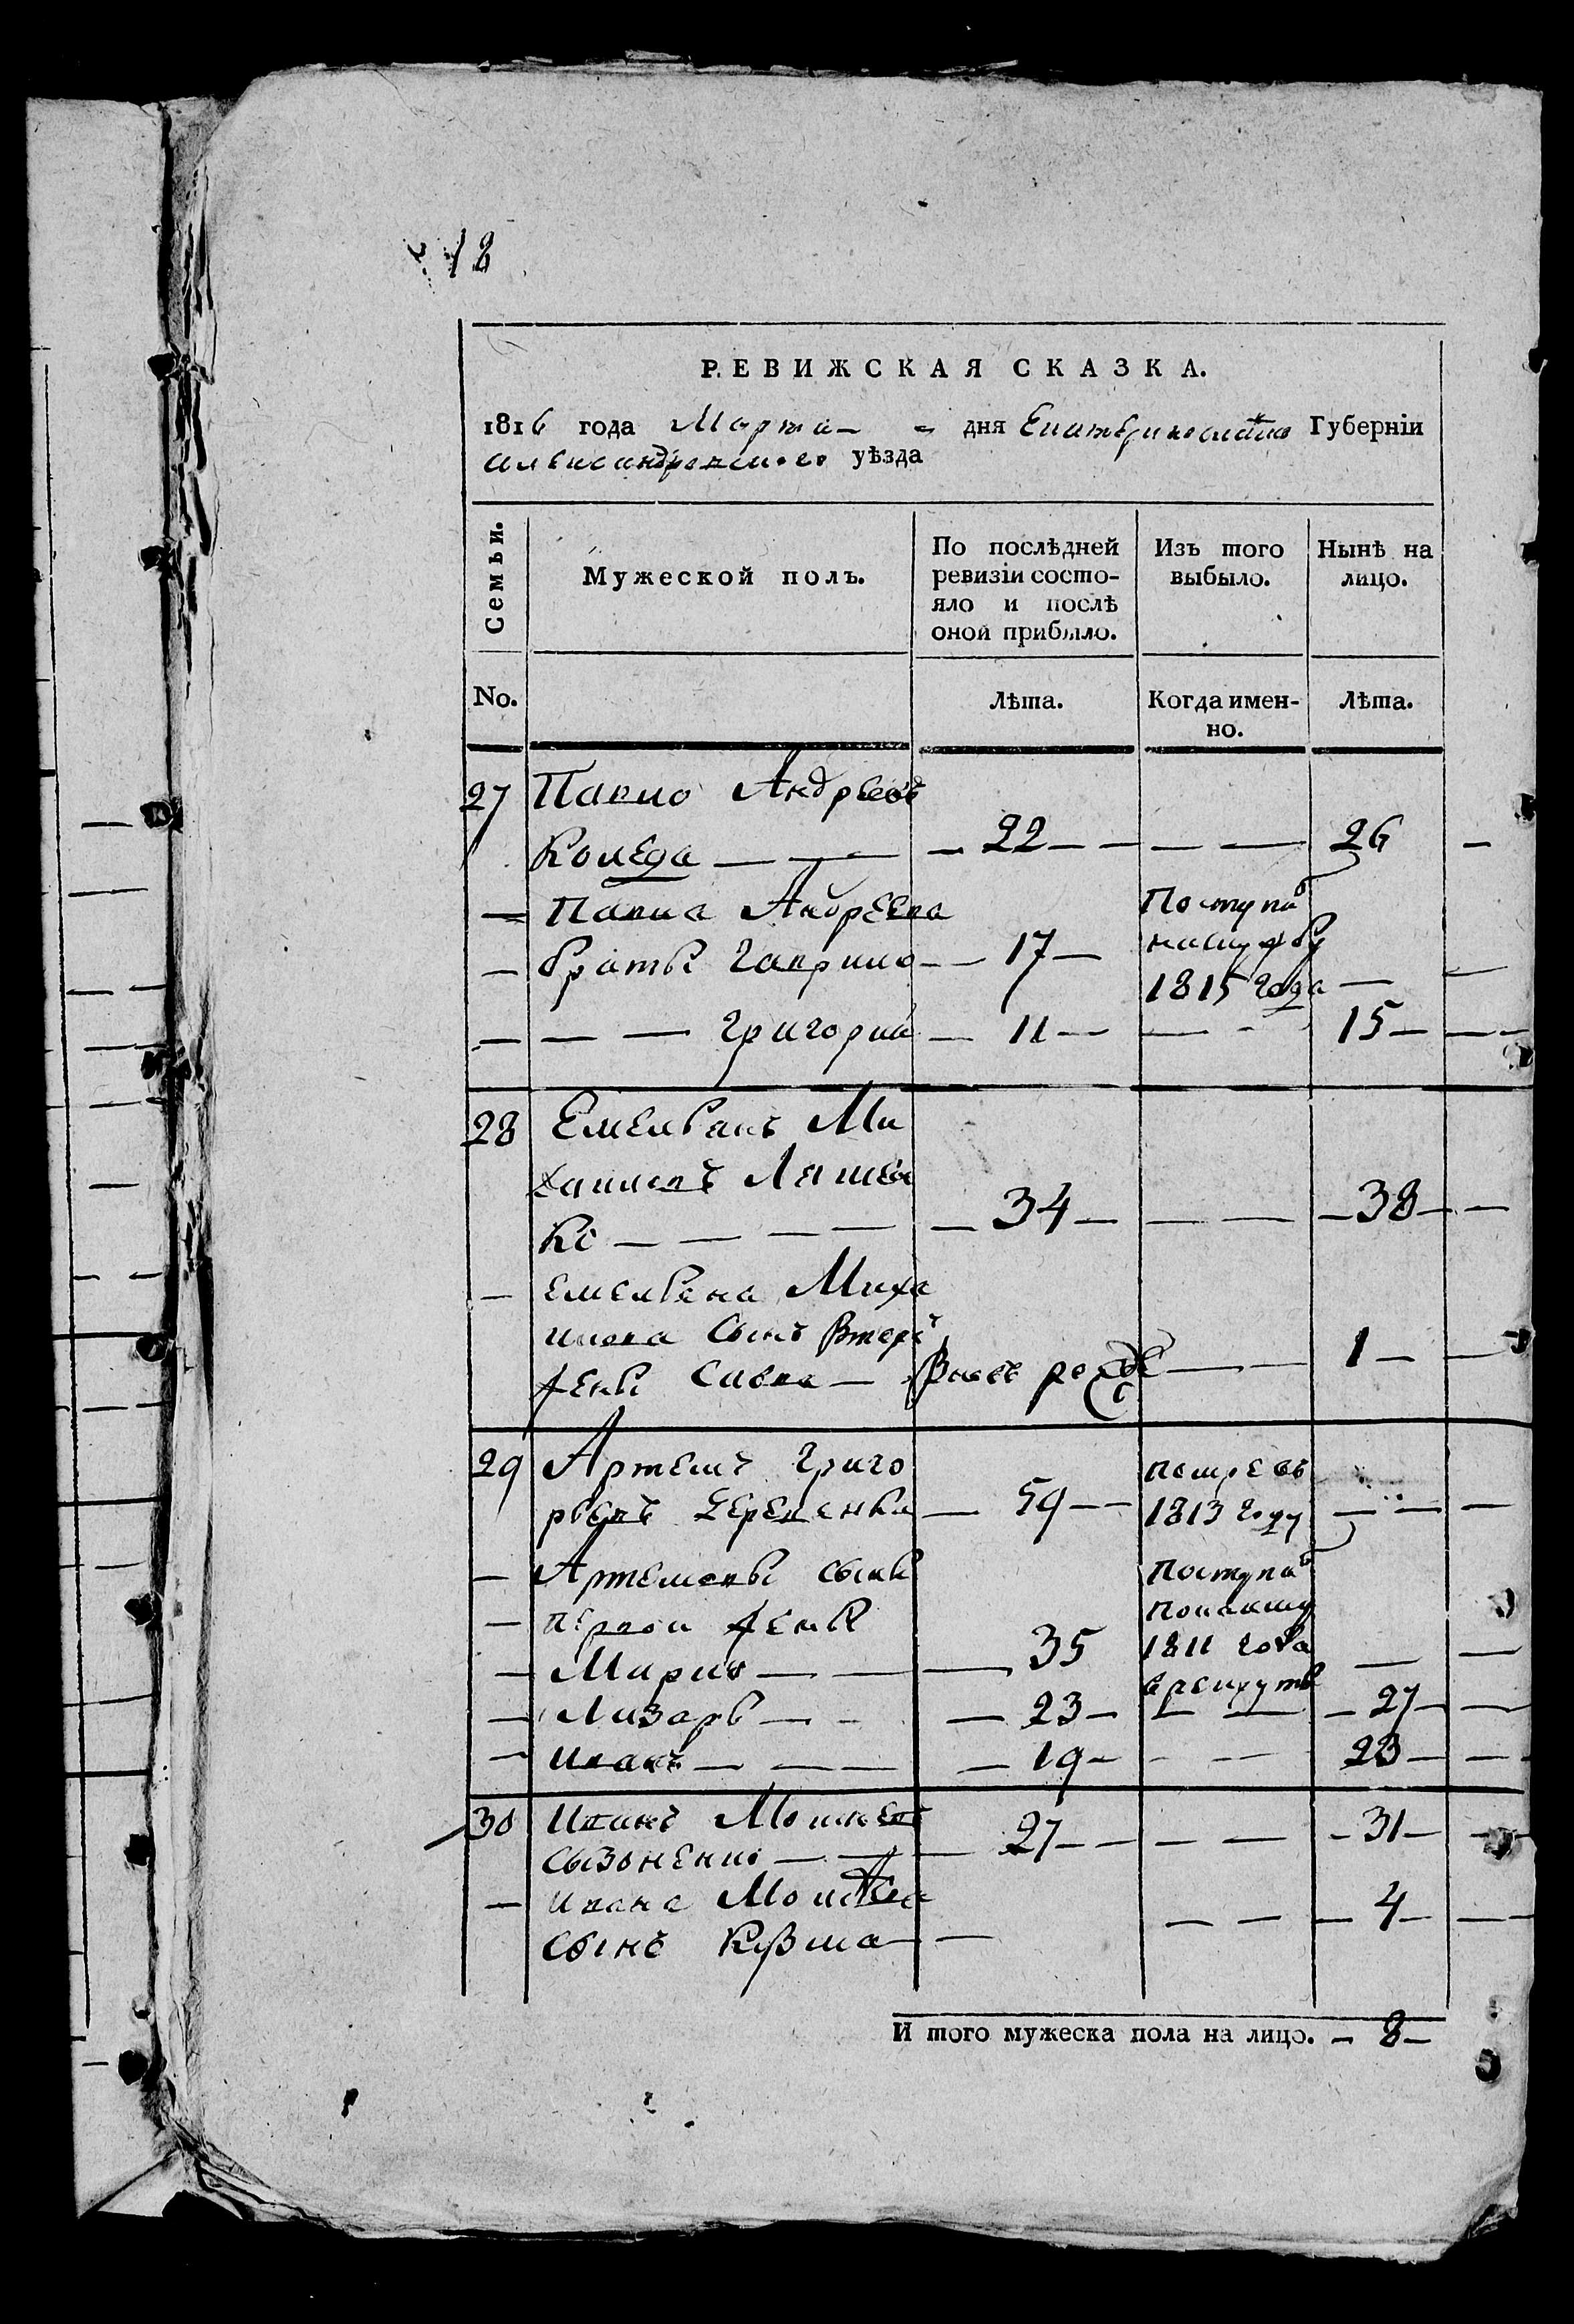 12
РЕВИЖСКАЯ СКАЗКА.
1816 года Марта — дня Екатеринославской Губерніи
Александровского уѣзда
Семьи.
Мужеской полъ.
По послѣдней ревизіи состояло и послѣ оной прибыло.
Изъ того выбыло.
Нынѣ на лицо.
No.
Лѣта.
Когда именно.
Лѣта.
27 Павло Андреевъ
Коледа — — — 22 — — — — 26 —
— Павла Андреева Поступил
— братья Гаврило — 17 — на службу
1815 года —
— — — Григорий — 11 — — - 15 — —
28 Емельянъ Ми
хаиловъ Ляшен
ко — — — — — 34 — — — — 38 — —
— Емельяна Миха
илова сынъ второй
жены Савва — Вновь рожде — — 1 — —
29 Артемъ Григо помре въ
рьевъ — 59 — — 1813 году — — —
— Артемовы сыны Поступил
— первой жены
— Марко — — — 35 1811 года — —
в рекруты
— Лазарь — - — 23 — — — — 27 — —
— Иванъ — — — — 19 — - — 23 — —
30 Иванъ Моисеев
Сызоненко — — — 27 — — — — — 31 — —
— Ивана Моисеева
сынъ Кузма — — — — — 4 — —
И того мужеска пола на лицо. — 8 —